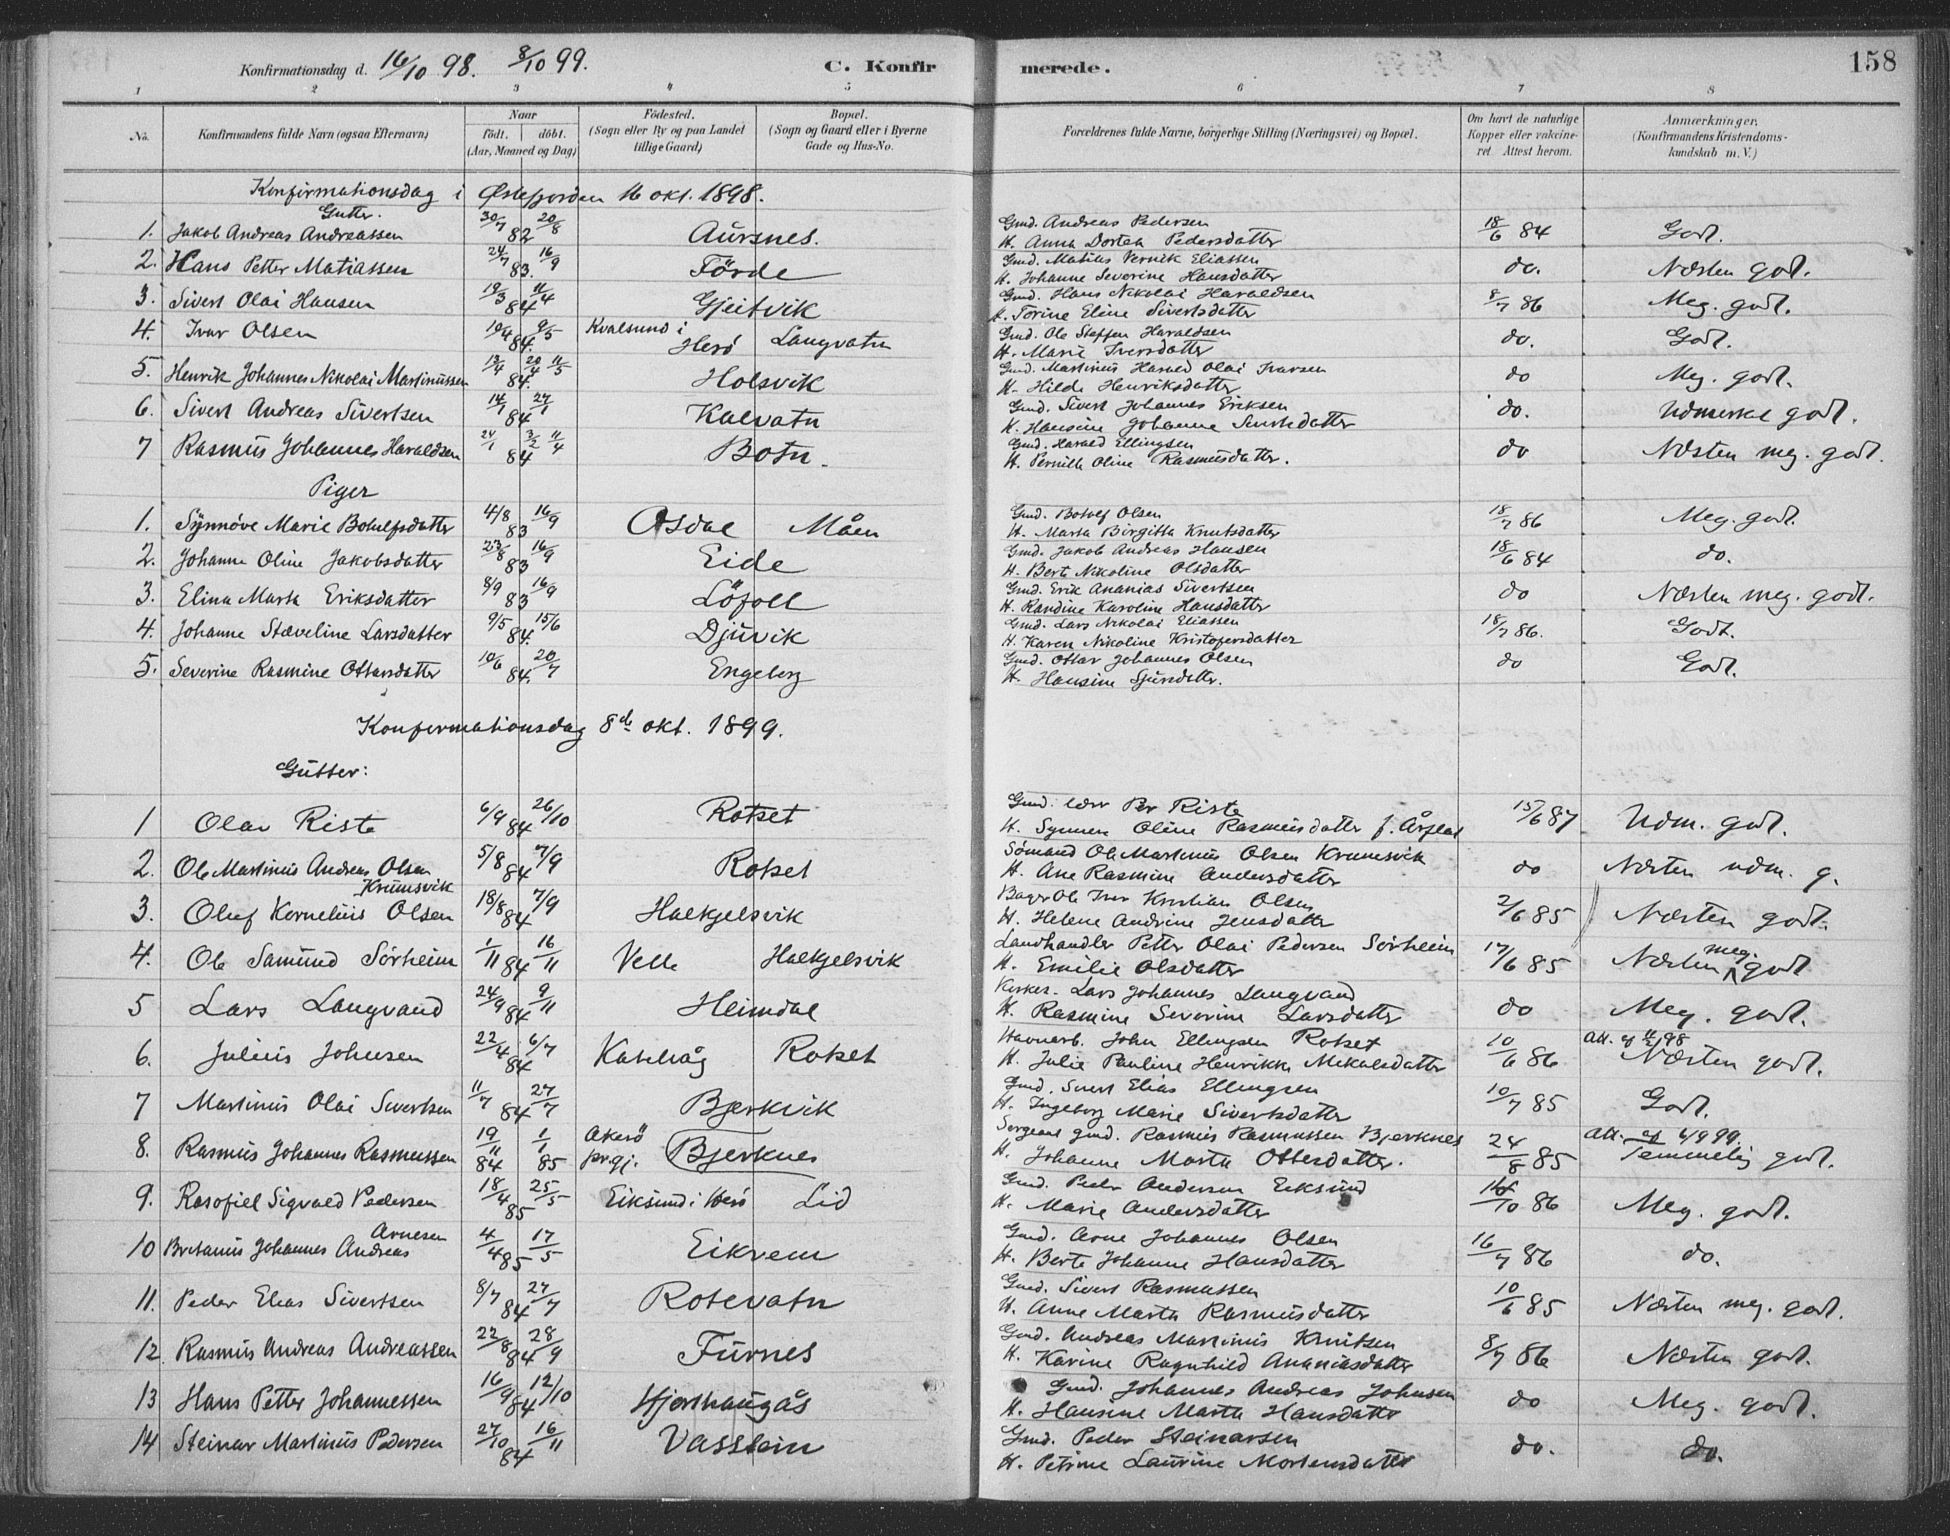 Konfirmationsdag d. 16/10 98. 8/10 99. C. Konfir merede. 158
1 2 3 4 5 6 7 8
No. Konfirmandens fulde Navn (ogsaa Efternavn) Naar födt. döbt. (Aar, Maaned og Dag) Födested. (Sogn eller By og paa Landet tillige Gaard) Bopæl. (Sogn og Gaard eller i Byerne Gade og Hus-No. Forældrenes fulde Navne, borgerlige Stilling (Næringsvei) og Bopæl. Om havt de naturlige Kopper eller vakcineret Attest herom. Anmærkninger. (Konfirmandens Kristendomskundskab m. V.)
Konfirmationsdag i Østefjorden 16 okt. 1898.
Gutter.
1. Jakob Andreas Andreassen 30/7 82 20/8 Aursnes. Gmd. Andreas Pedersen H. Anna Dortea Pedersdatter 18/6 84 Godt.
2. Hans Petter Matiassen 24/7 83. 16/9 Förde Gmd. Matias Eliassen H. Johanne Severine Hansdatter do. Næsten godt.
3. Sivert Olai Hansen 19/3 84 11/4 Gjeitvik Gmd. Hans Nikolai Haraldsen H. Torine Eline Sivertsdatter 8/7 86 Meg. godt.
4. Ivar Olsen 10/4 84. 9/5 Kvalsund i Herö Langvatn Gmd. Ole Steffen Haraldsen H. Marie Iversdatter do. Godt.
5. Henrik Johannes Nikolai Martinussen 13/4 84. 20/4 11/5 Holsvik Gmd. Martinus Harald Olai Ivarsen H. Hilde Henriksdatter do Meg. godt.
6. Sivert Andreas Sivertsen 14/1 84 27/1 Kalvatn Gmd. Sivert Johannes Eriksen H. Hansine Johanne do. Udmerket godt.
7 Rasmus Johannes Haraldsen 24/1 84 3/2 11/4 Botn. Gmd. Harald Ellingsen H. Pernille Oline Rasmusdatter. do Næsten meg. godt.
Piger
1. Synnöve Marie Botulfsdatter 4/8 83 16/9 Osdal Måen Gmd. Botolf Olsen H. Marta Birgitta Knutsdatter 18/7 86 Meg. godt.
2. Johanne Oline Jakobsdatter 23/8 83 16/9 Eide Gmd. Jakob Andreas Hansen H. Berte Nikoline Olsdatter 18/6 84 do.
3. Elina Marta Eriksdatter 8/9 83 16/9 Löfoll Gmd. Erik Ananias Sivertsen H. Randine Karoline Hansdatter do Næsten meg. godt.
4. Johanne Stæveline Larsdatter 9/5 84. 15/6 Djuvik Gmd. Lars Nikolai Eliassen H. Karen Nikoline Kristofersdatter 18/7 86. Godt.
5. Severine Rasmine Ottarsdatter 10/6 84. 20/7 Engeborg Gmd. Ottar Johannes Olsen H. Hansine Sjursdatter. do Godt.
Konfirmationsdag 8de okt. 1899.
Gutter:
1 Olav Riste 6/9 84 26/10 Rotset Gmd. lærer Per Riste H. Synneva Oline Rasmusdatter f. Årflot 15/6 87 Udm. godt.
2. Ole Martinus Andreas Olsen Krumsvik 5/8 84 7/9 Rotset Sömand Ole Martinus Olsen Krumsvik H. Ane Rasmine Andersdatter do Næsten udm. g.
3. Oluf Kornelius Olsen 18/8 84 7/9 Halkjelsvik Bager Ole Iver Kristian Olsen H. Helene Andrine Jensdatter 2/6 85 Næsten godt.
4. Ole Samund Sörheim 1/11 84 16/11 Velle Halkjelsvik Landhandler Petter Olai Pedersen Sörheim H. Emilie Olsdatter 17/6 85 Næsten meg. godt
5 Lars Langvand 24/9 84 9/11 Heimdal Kirkes. Lars Johannes Langvand H. Rasmine Severine Larsdatter do Meg. godt.
6. Julius Johnsen 22/4 84 6/7 Rotset Havnearb. John Ellingsen Rotset H. Julie Pauline Henrikke Mekalsdatter 10/6 86 Att. af 98 Næsten godt.
7 Martinus Olai Sivertsen 11/7 84 27/7 Bjerkvik Gmd. Sivert Elias Ellingsen H. Ingeborg Marie Sivertsdatter 10/7 85 Godt.
8. Rasmus Johannes Rasmussen 19/11 84 1/1 85 Akerö prgj. Bjerknes Sergeant gmd. Rasmus Rasmussen Bjerknes H. Johanne Marta Ottersdatter. 24/8 85 Att. af 4/9 99. Temmelig godt.
9. Rasofiel Sigvald Pedersen 18/4 85 25/5 Eiksund i Herö Lid Gmd. Peder Andersen Eiksund H. Marie Andersdatter 86 Meg. godt.
10 Bretanus Johannes Andreas Arnesen 4/4 85 17/5 Eikrem Gmd. Arne Johannes Olsen H. Berte Johanne Hansdatter 16/7 86 do.
11. Peder Elias Sivertsen 8/7 84 27/7 Rotevatn Gmd. Sivert Rasmussen H. Anne Marta Rasmusdatter 10/6 85 Næsten meg. godt.
12. Rasmus Andreas Andreassen 22/8 84 28/9 Furnes Gmd. Andreas Martinus Knutsen H. Karine Ragnhild Ananiasdatter 8/7 86 Næsten godt.
13 Hans Petter Johannessen 16/9 84 12/10 Hjorthaugås Gmd. Johannes Andreas Johnsen H. Hansine Marta Hansdatter do Meg. godt.
14 Steinar Martinus Pedersen 27/10 84 16/11 Vasstein Gmd. Peder Steinarsen H. Petrine Laurine Mortensdatter do. do.